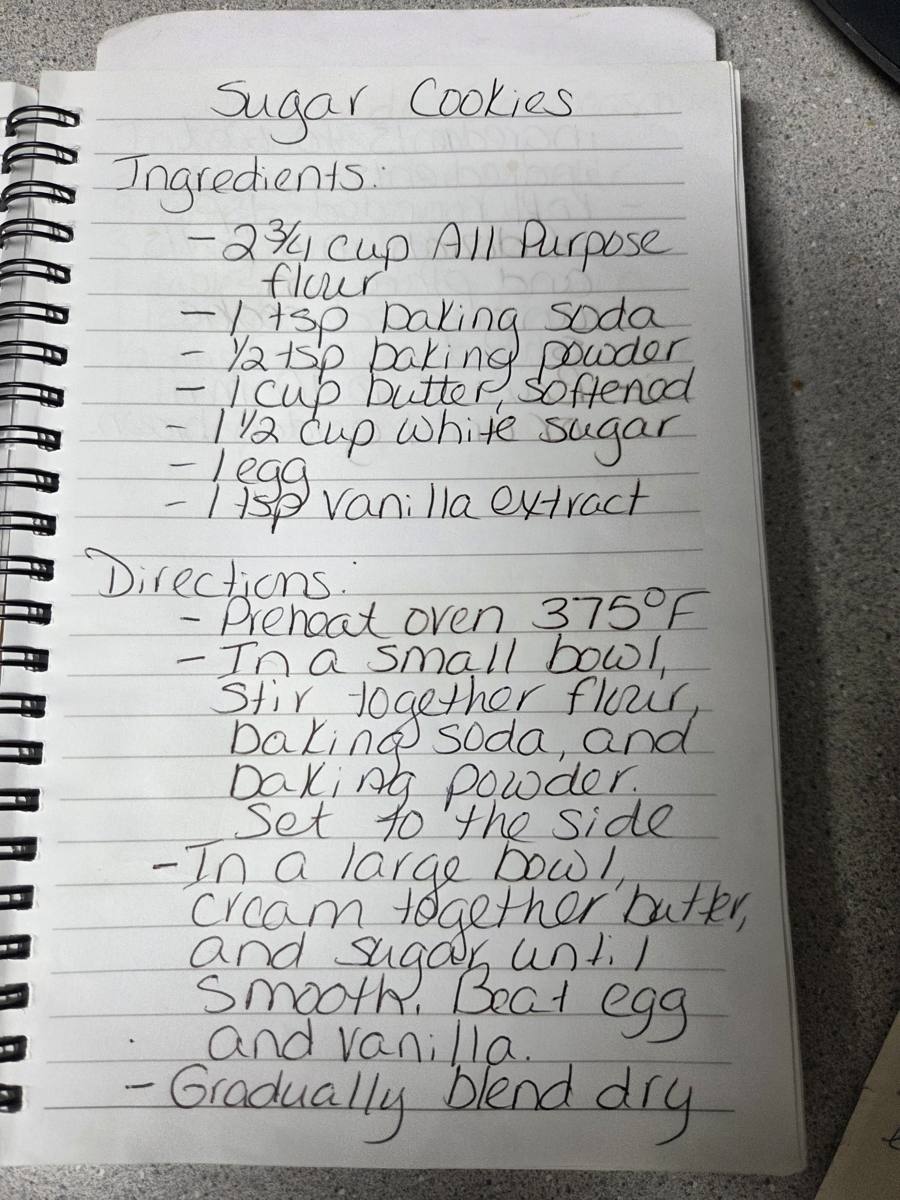 Sugar Cookies
Ingredients:
- 2 3/4 cup All Purpose
flour
- 1 tsp baking soda
- 1/2 tsp baking powder
- 1 cup butter, softened
- 1 1/2 cup white sugar
- 1 egg
- 1 tsp vanilla extract
Directions:
- Preheat oven 375°F
- In a small bowl,
stir together flour,
baking soda, and
baking powder.
Set to the side
- In a large bowl,
cream together butter,
and sugar until
smooth. Beat egg
and vanilla.
- Gradually blend dry